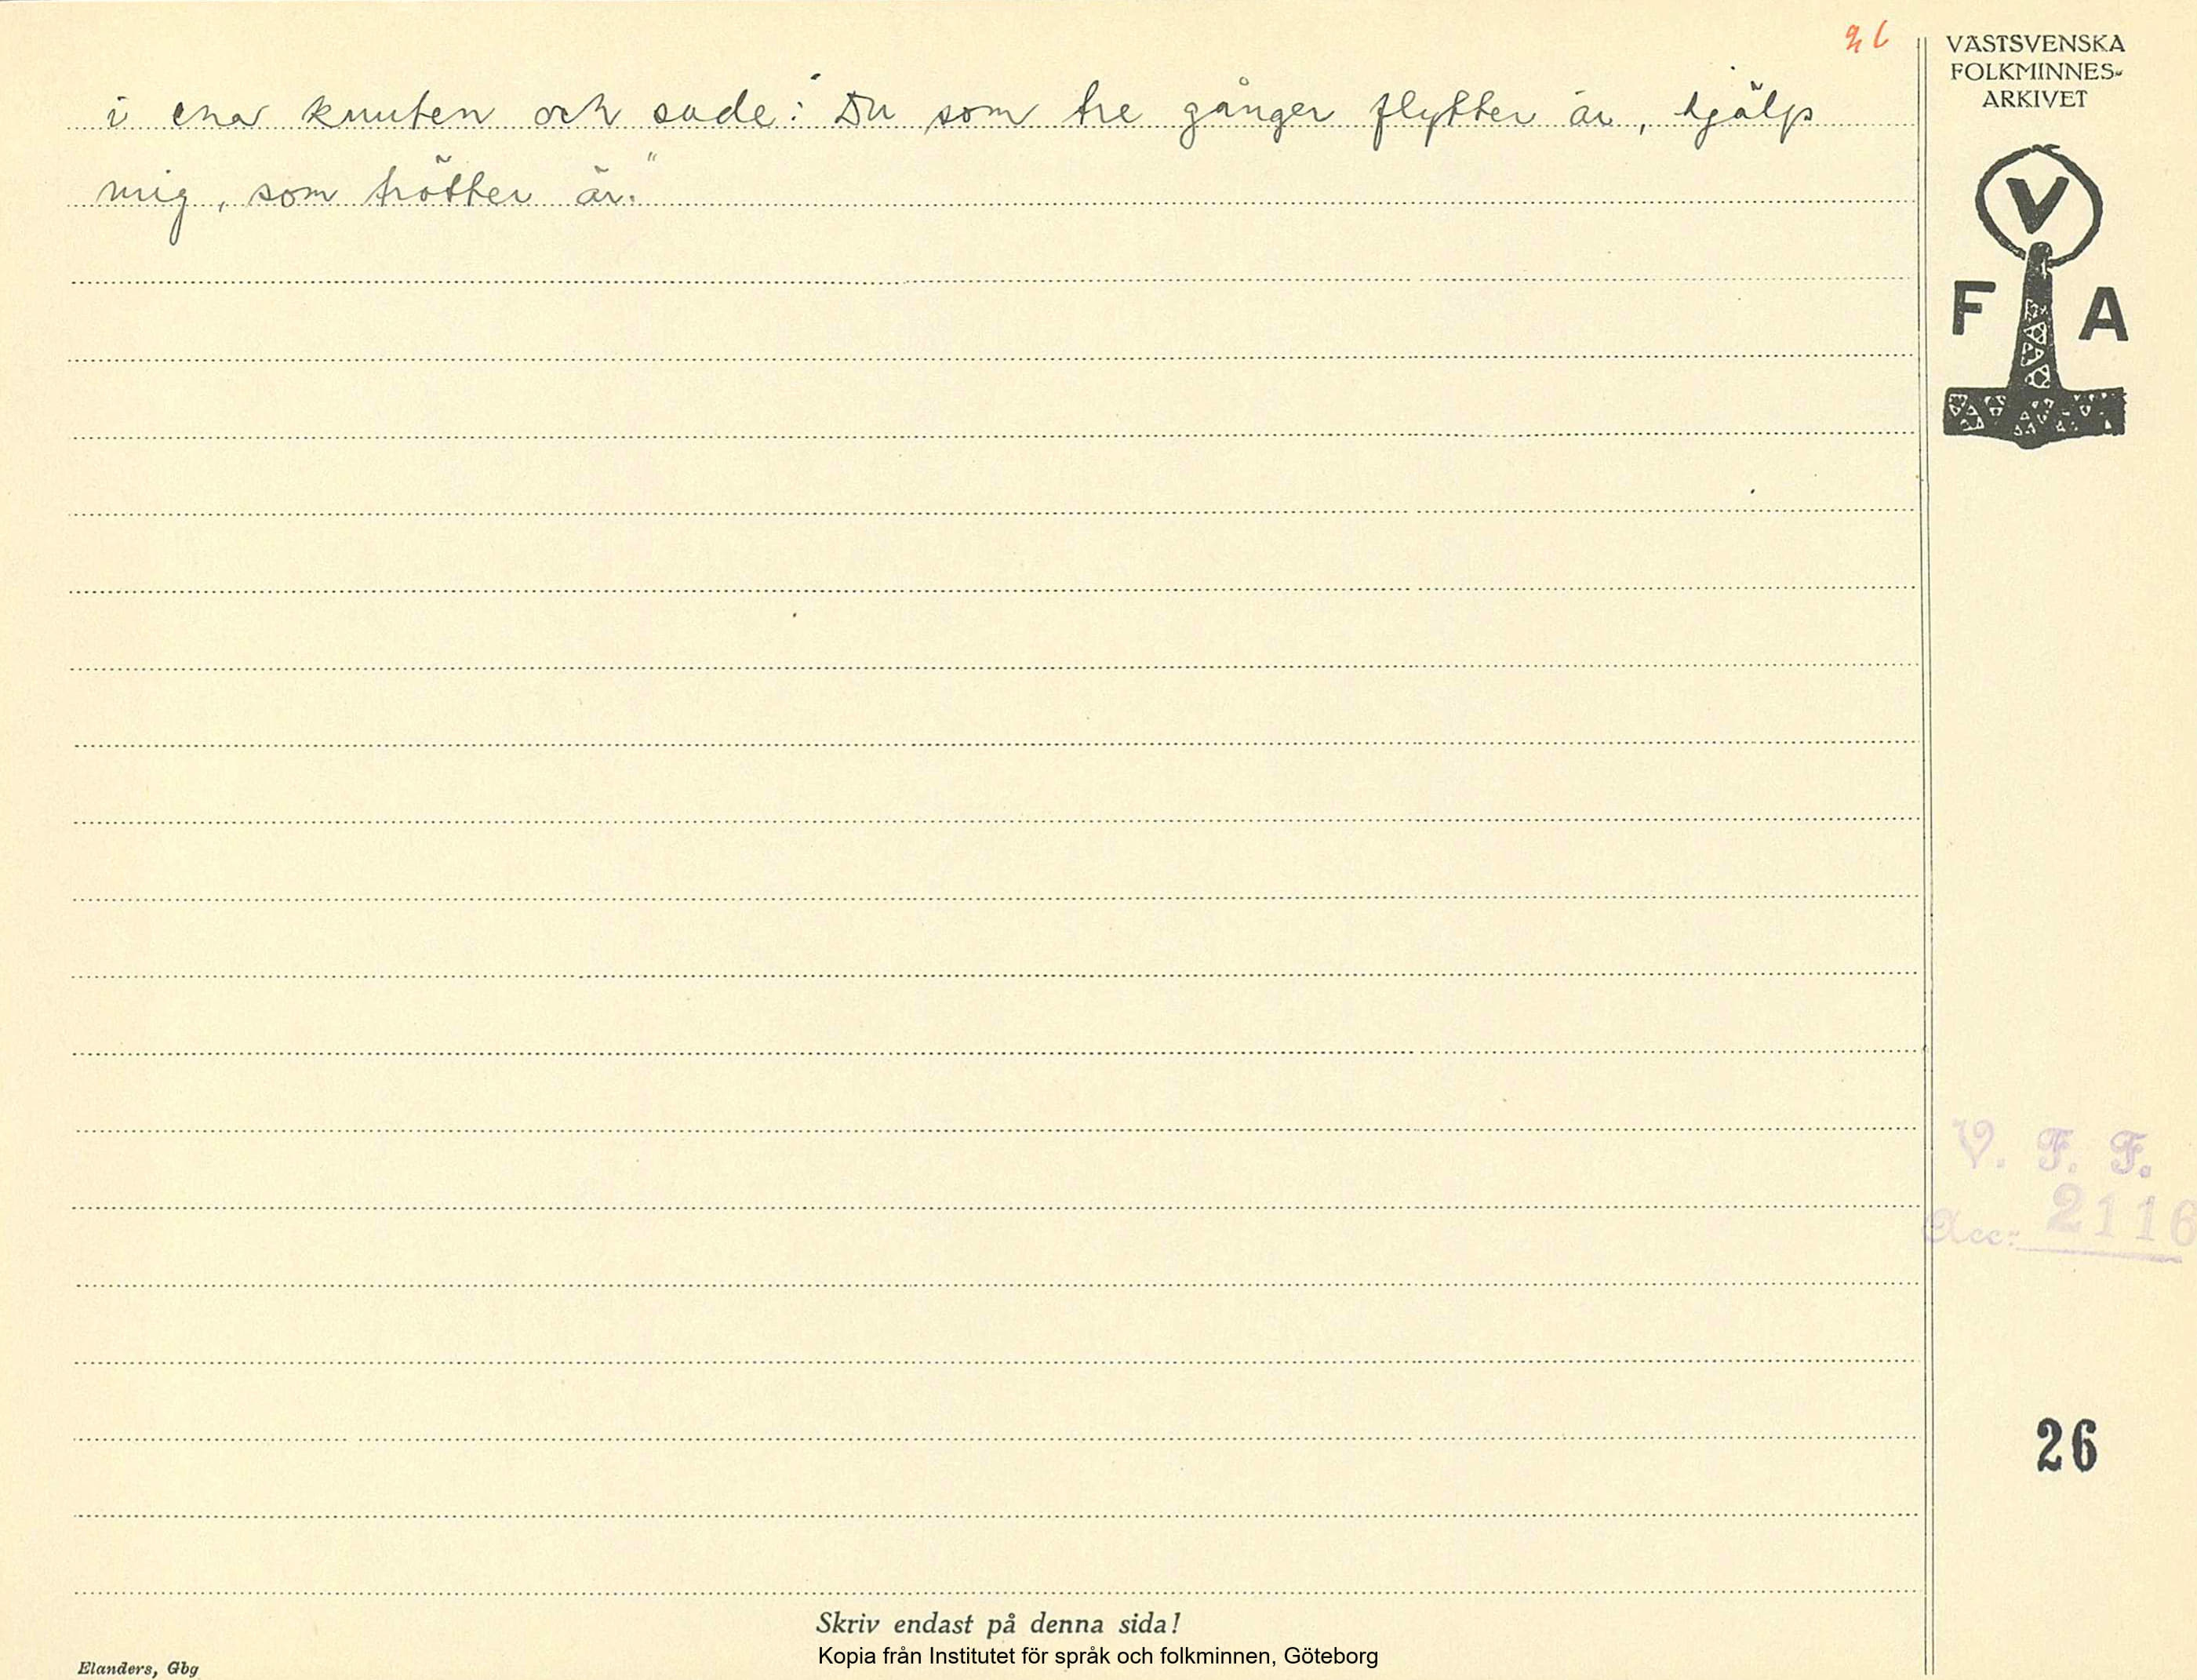 26
VÄSTSVENSKA
FOLKMINNES-
ARKIVET
i ena knuten och sade: "Du som tre gånger flytter är, hjälp
mig, som trötter är."
V
F A
V. F. F.
Acc. 2116
26
Skriv endast på denna sida!
Kopia från Institutet för språk och folkminnen, Göteborg
Elanders, Gbg